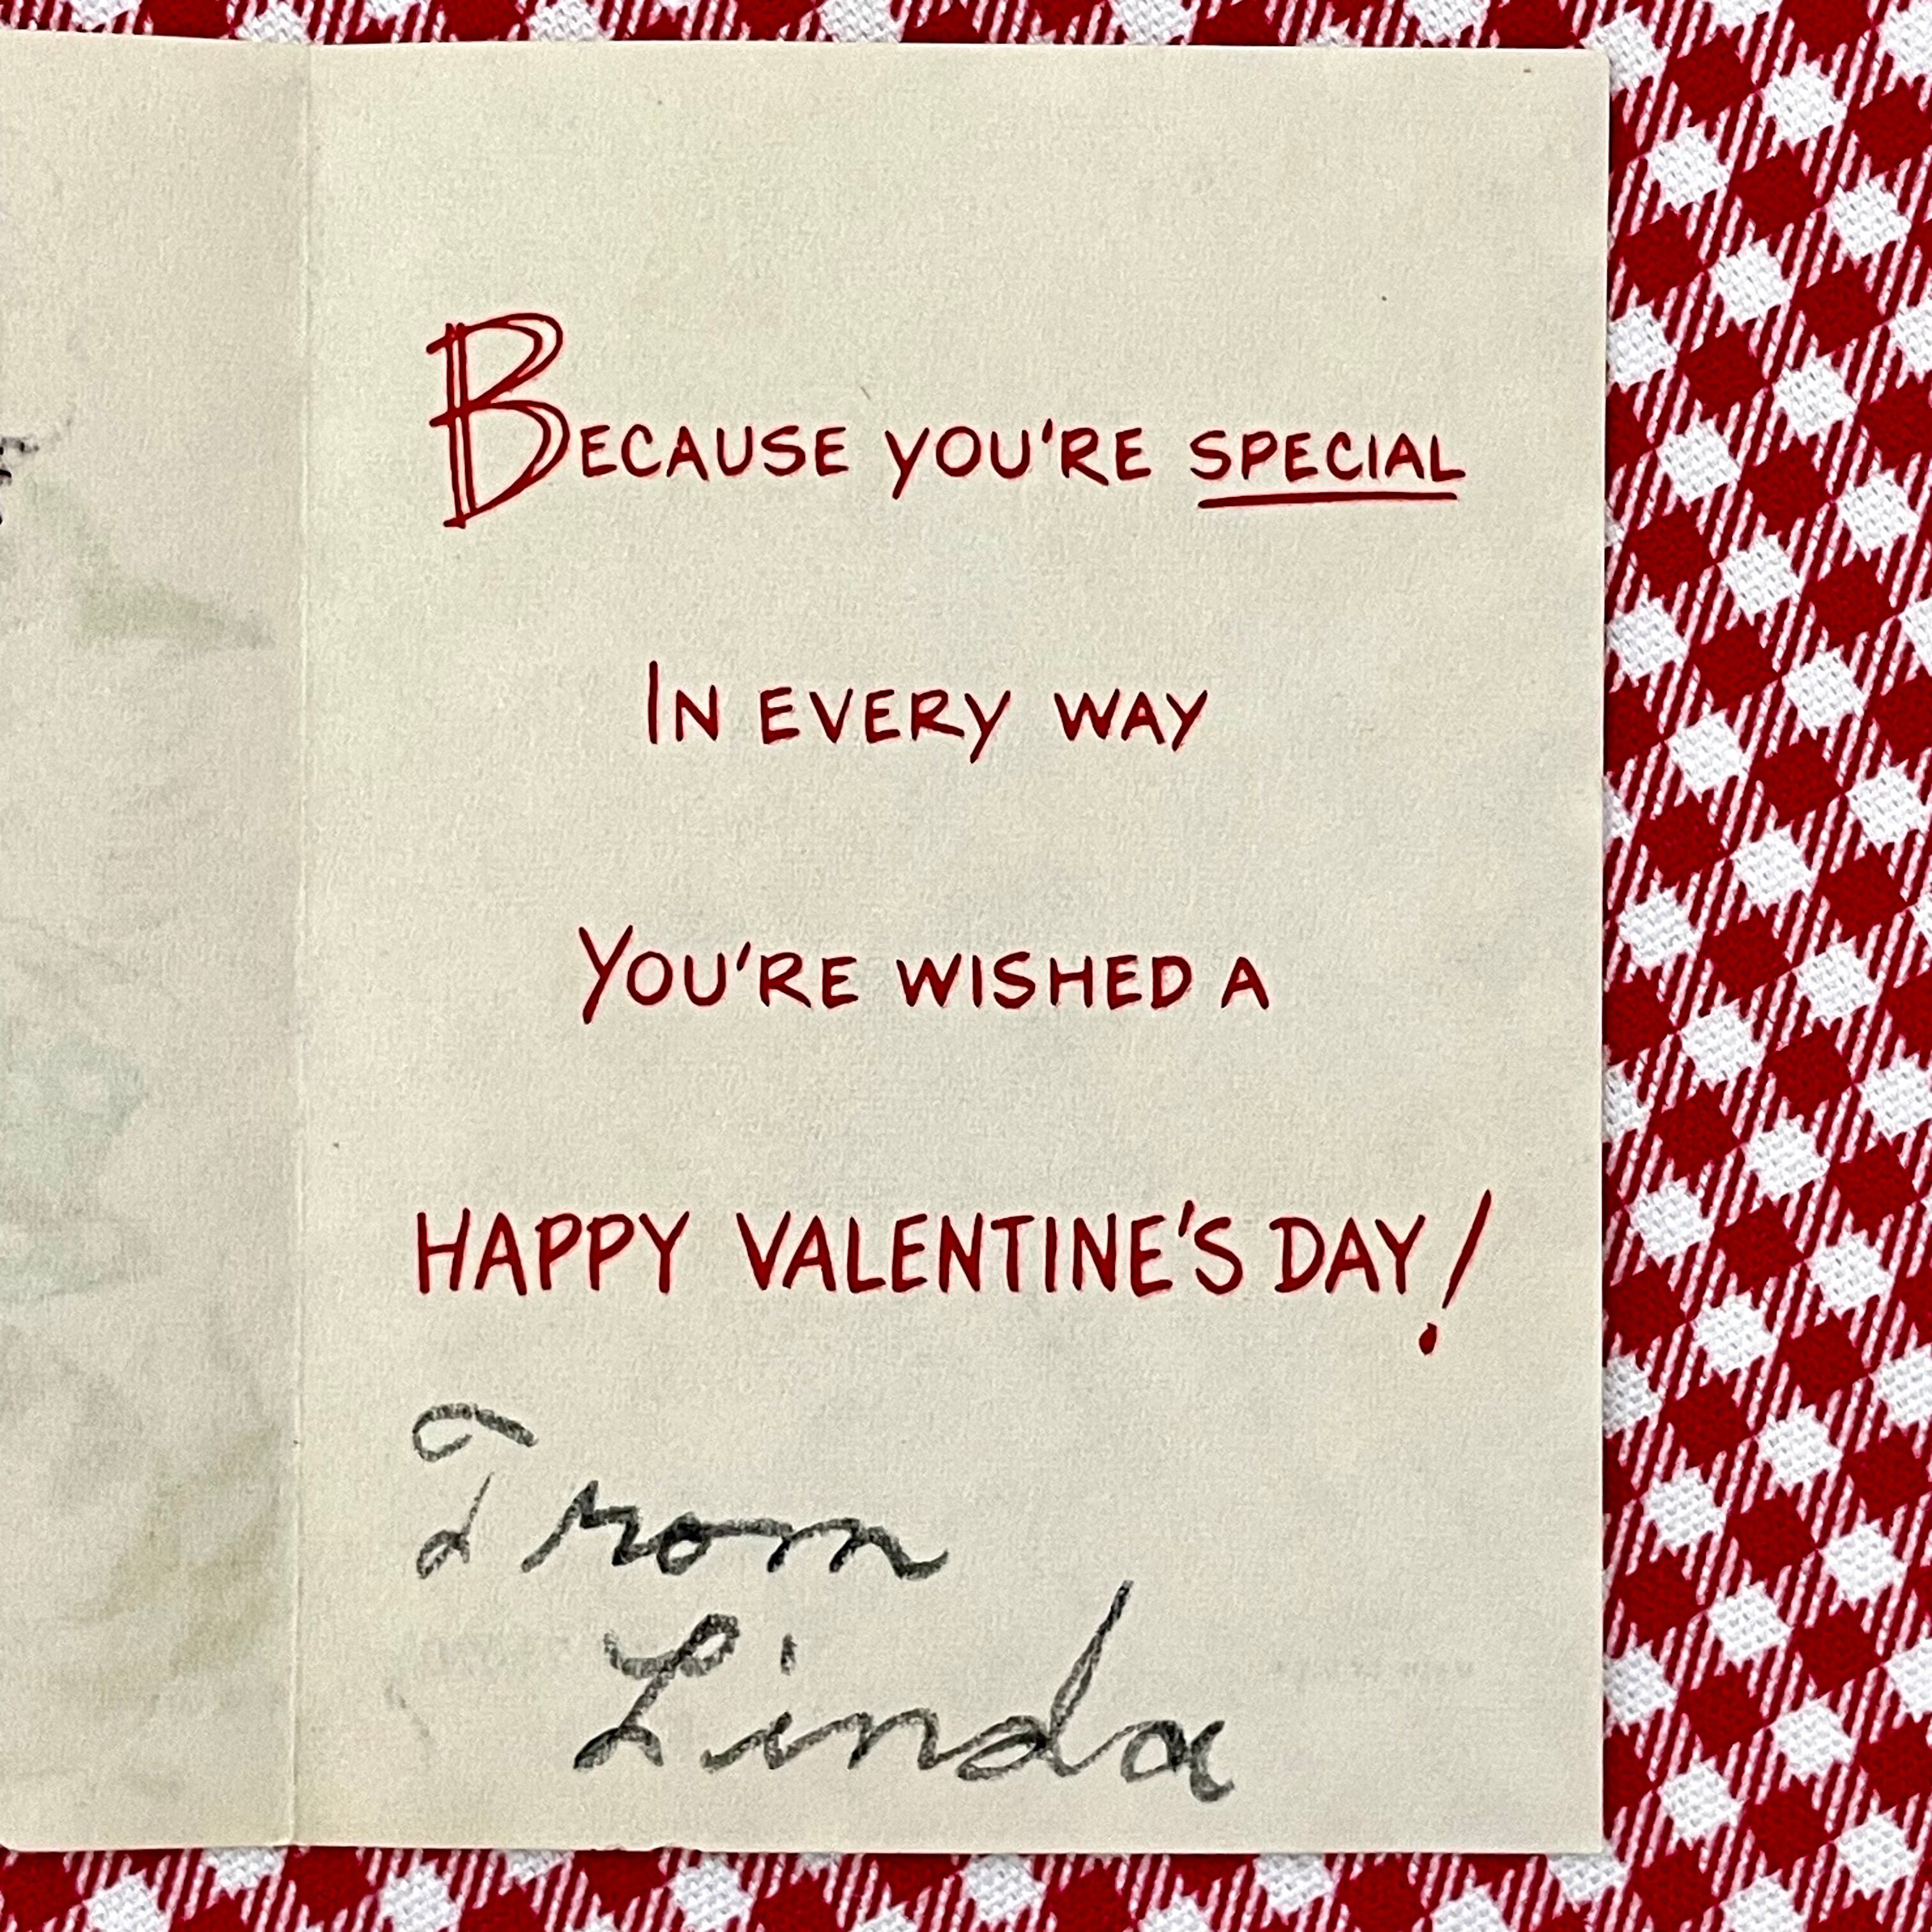 BECAUSE YOU'RE SPECIAL
IN EVERY WAY
YOU'RE WISHED A
HAPPY VALENTINE'S DAY!
From
Linda